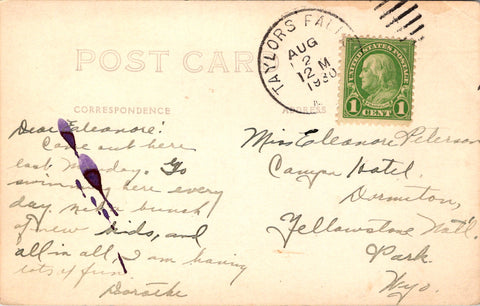 POST CARD
TAYLORS FALL
AUG
2
12 M
1930
UNITED STATES POSTAGE
1 CENT 1
CORRESPONDENCE
ADDRESS
Dear Eleanore:
Came out here
last Monday. Go
swimming here every
day. Met a bunch
of new kids, and
all in all, I am having
lots of fun.
Dorothe
Miss Eleanore Peterson
Camp Hotel.
Dormitory,
Yellowstone Nat'l.
Park.
Wyo.